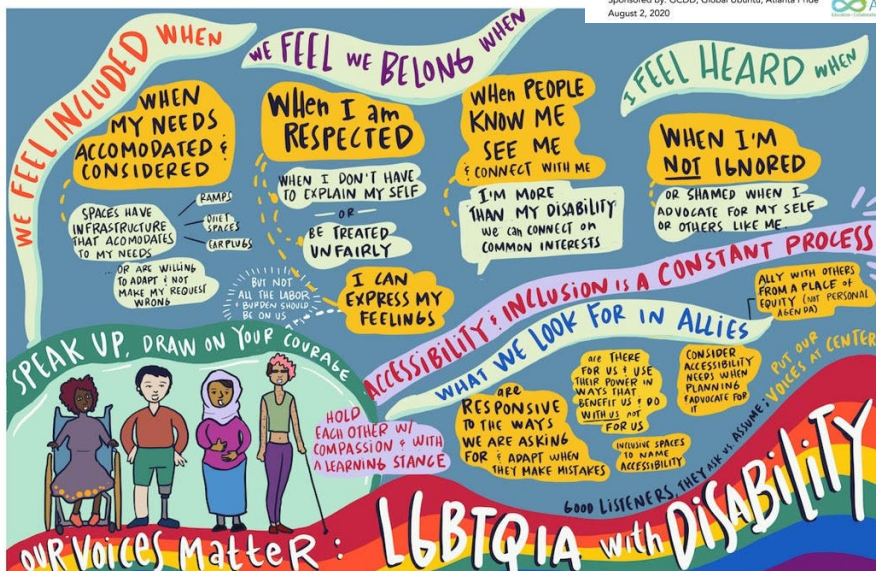 Sponsored by: GCDD, Global Ubuntu, Atlanta Pride
August 2, 2020
WE FEEL INCLUDED WHEN
WHEN
MY NEEDS
ACCOMODATED &
CONSIDERED
SPACES HAVE
INFRASTRUCTURE
THAT ACOMODATES
TO MY NEEDS
RAMPS
QUIET
SPACES
EARPLUGS
...OR ARE WILLING
TO ADAPT & NOT
MAKE MY REQUEST
WRONG
WE FEEL WE BELONG WHEN
WHEN I am
RESPECTED
WHEN I DON'T HAVE
TO EXPLAIN MY SELF
- OR -
BE TREATED
UNFAIRLY
I CAN
EXPRESS MY
FEELINGS
BUT NOT
ALL THE LABOR
& BURDEN SHOULD
BE ON US
WHEN PEOPLE
KNOW ME
SEE ME
& CONNECT WITH ME
I'M MORE
THAN MY DISABILITY
we can CONNECT ON
COMMON INTERESTS
I FEEL HEARD WHEN
WHEN I'M
NOT IGNORED
OR SHAMED WHEN I
ADVOCATE FOR MY SELF
OR OTHERS LIKE ME.
ACCESSIBILITY & INCLUSION IS A CONSTANT PROCESS
WHAT WE LOOK FOR IN ALLIES
ALLY WITH OTHERS
FROM A PLACE of
EQUITY (NOT PERSONAL
AGENDA)
are
RESPONSIVE
TO THE WAYS
WE ARE ASKING
FOR & ADAPT WHEN
THEY MAKE MISTAKES
are THERE
FOR US & USE
THEIR POWER IN
WAYS THAT
BENEFIT US & DO
WITH US NOT
FOR US
CONSIDER
ACCESSIBILITY
NEEDS WHEN
PLANNING
& ADVOCATE FOR
IT
INCLUSIVE SPACES
TO NAME
ACCESSIBILITY
GOOD LISTENERS, THEY ASK VS. ASSUME; PUT OUR
VOICES AT CENTER
SPEAK UP, DRAW ON YOUR COURAGE
HOLD
EACH OTHER W/
COMPASSION & WITH
A LEARNING STANCE
OUR VOICES MATTER: LGBTQIA with DISABILITY